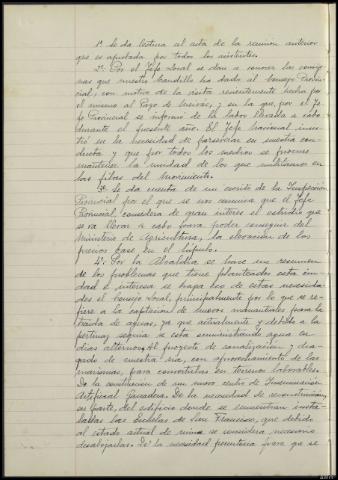 1º Se da lectura al acta de la reunión anterior
que es aprobada por todos los asistentes.
2º Por el Jefe Local se dan a conocer las consig-
nas que nuestro Caudillo ha dado al Consejo Provin-
cial, con motivo de la visita recientemente hecha por
el mismo al Pazo de Meirás, y en la que, por el Je-
fe Provincial se informó de la labor llevada a cabo
durante el presente año. El Jefe Nacional insis-
tió en la necesidad de perseverar en nuestra con-
ducta y que por todos los medios se procure
mantener la unidad de los que militamos en
las filas del Movimiento.
3º Se da cuenta de un escrito de la Inspección
Provincial por el que se nos comunica que el Jefe
Provincial, considera de gran interés el estudio que
se va llevar a cabo para poder conseguir del
Ministerio de Agricultura, la elevación de los
precios base en el lúpulo.
4º Por la Alcaldía se hace un resumen
de los problemas que tiene planteados esta ciu-
dad e interesa se haga eco de estas necesida-
des el Consejo Local, principalmente por lo que se re-
fiere a la captación de nuevos manantiales para la
traida de aguas, ya que actualmente y debido a la
pertinaz sequía se está suministrando agua en
días alternos. Al proyecto de canalización y dra-
gado de nuestra ría, con aprovechamiento de las
marismas, para convertirlas en terrenos laborables.
De la constitución de un nuevo centro de Inseminación
Artificial Ganadera. De la necesidad de reconstrucción,
en parte, del edificio donde se encuentran insta-
ladas las Escuelas de San Francisco, que debido
al estado actual de ruina se considera necesario
desalojarlas. De la necesidad perentoria para que se